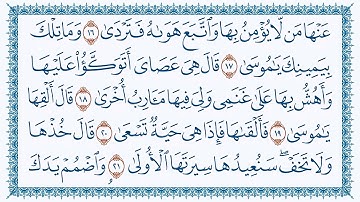 عَنْهَا مَن لَّا يُؤْمِنُ بِهَا وَٱتَّبَعَ هَوَىٰهُ فَتَرْدَىٰ ١٦ وَمَا تِلْكَ
بِيَمِينِكَ يَٰمُوسَىٰ ١٧ قَالَ هِىَ عَصَاىَ أَتَوَكَّؤُا۟ عَلَيْهَا
وَأَهُشُّ بِهَا عَلَىٰ غَنَمِى وَلِىَ فِيهَا مَـَٔارِبُ أُخْرَىٰ ١٨ قَالَ أَلْقِهَا
يَٰمُوسَىٰ ١٩ فَأَلْقَىٰهَا فَإِذَا هِىَ حَيَّةٌ تَسْعَىٰ ٢٠ قَالَ خُذْهَا
وَلَا تَخَفْ ۖ سَنُعِيدُهَا سِيرَتَهَا ٱلْأُولَىٰ ٢١ وَٱضْمُمْ يَدَكَ